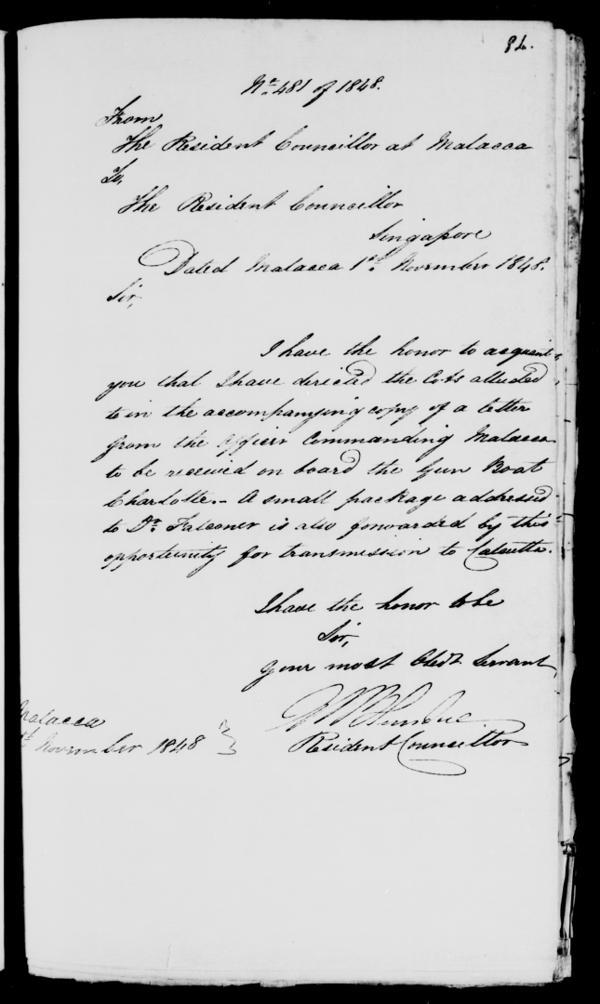 82.
No. 481 of 1848.
From
The Resident Councillor at Malacca
To,
The Resident Councillor
Singapore
Dated Malacca 1st. November 1848.
Sir,
I have the honor to acquaint
you that I have directed the Cots alluded
to in the accompanying copy of a letter
from the Officer Commanding Malacca
to be received on board the Gun Boat
Charlotte. - A small package addressed
to Dr. Falconer is also forwarded by this
opportunity for transmission to Calcutta.
I have the honor to be
Sir,
Your most Obedt Servant,
Resident Councillor
Malacca
November 1848